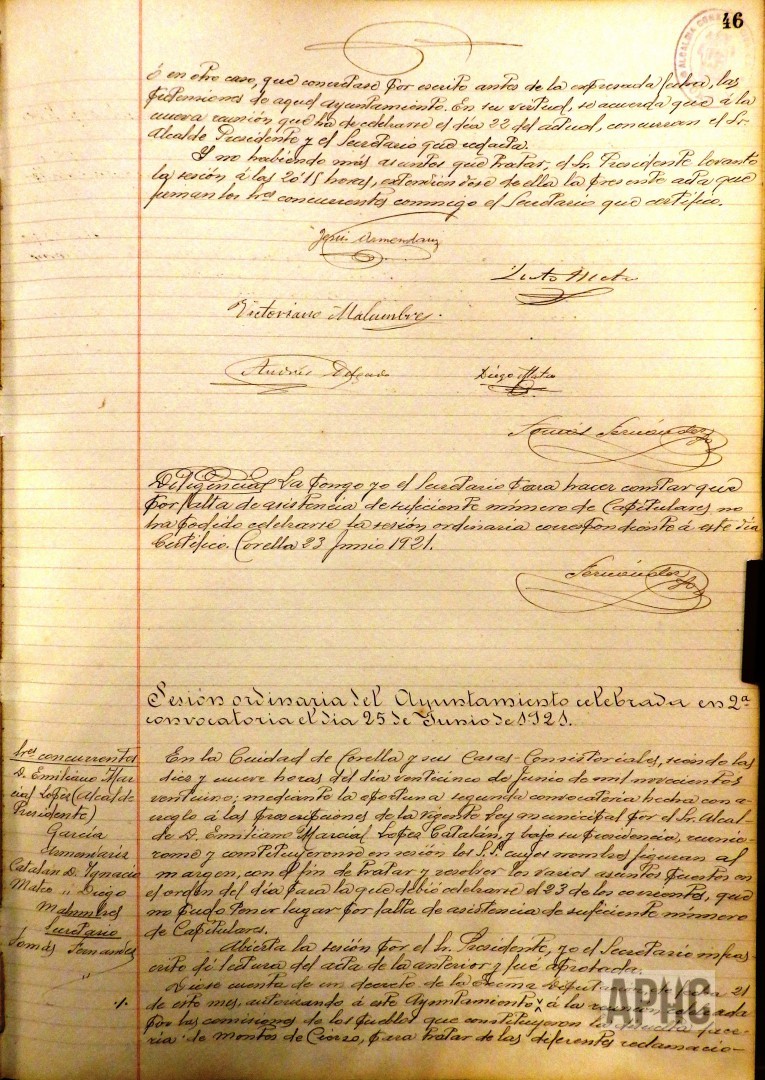 46
ó en otro caso, que concretase por escrito antes de la expresada fecha, las
pretensiones de aquel ayuntamiento. En su virtud, se acuerda que á la
nueva reunión que ha de celebrarse el día 22 del actual, concurran el Sr.
Alcalde Presidente y el Secretario que redacta.
Y no habiendo más asuntos que tratar, el Sr. Presidente levantó
la sesión á las 20'15 horas, extendiendose de ella la presente acta que
firman los Sres concurrentes conmigo el Secretario que certifico.
Victoriano Malumbres.
Andrés Delgado
Diego Mateo
Tomás Fernández
Diligencia La pongo yo el Secretario para hacer constar que
por falta de asistencia de suficiente número de Capitulares no
ha podido celebrarse la sesión ordinaria correspondiente á este día
Certifico. Corella 23 Junio 1921.
Fernández
Sesión ordinaria del Ayuntamiento celebrada en 2ª
convocatoria el día 25 de Junio de 1921.
Sres concurrentes
D. Emiliano Mar-
cial López (Alcalde
Presidente)
García
Catalán D. Ignacio
Mateo " Diego
Malumbres
Secretario
Tomás Fernández
En la Ciudad de Corella y sus Casas-Consistoriales, siendo las
diez y nueve horas del día venticinco de Junio de mil novecientos
ventiuno; mediante la oportuna segunda convocatoria hecha con a-
rreglo á las prescripciones de la vigente Ley municipal por el Sr. Alcal-
de D. Emiliano Marcial López Catalán, y bajo su presidencia, reunié-
ronse y constituyeronse en sesión los S.S. cuyos nombres figuran al
margen, con el fin de tratar y resolver los varios asuntos puestos en
el orden del día para la que debió celebrarse el 23 de los corrientes, que
no pudo tener lugar por falta de asistencia de suficiente número
de Capitulares.
Abierta la sesión por el Sr. Presidente, yo el Secretario infras-
crito dí lectura del acta de la anterior y fué aprobada.
Diose cuenta de un decreto de la Excma Diputación fecha 21
de este mes, autorizando á este Ayuntamiento á la
por las comisiones de los pueblos que constituyeron la
ria de montes de Cierzo, para tratar de las diferentes reclamacio-
APHC